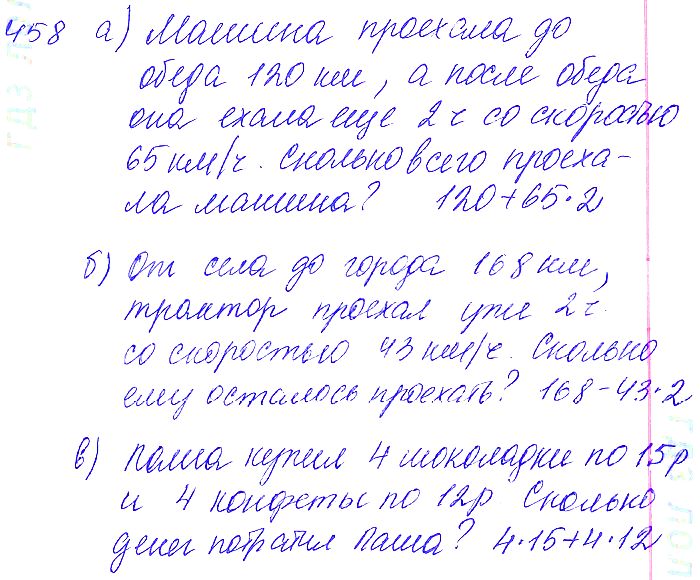 458 а) Машина проехала до
обеда 120 км, а после обеда
она ехала еще 2 ч со скоростью
65 км/ч. Сколько всего проеха-
ла машина? 120+65·2
б) От села до города 168 км,
трактор проехал уже 2 ч.
со скоростью 43 км/ч. Сколько
ему осталось проехать? 168-43·2
в) Паша купил 4 шоколадки по 15р
и 4 конфеты по 12р Сколько
денег потратил Паша? 4·15+4·12